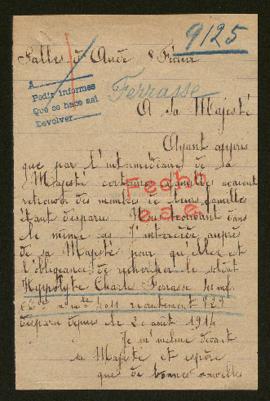 9125
Salles d'Aude 8 Février
A
Pedir informes
Que se hace así
Devolver
Terrasse
A sa Majesté
Ayant appris
que par l'intermédiaire de sa
Majesté certaines familles avaient
retrouver des membres de leurs familles
étant disparus Me trouvant dans
le même cas j'intercède auprès
de sa Majesté pour qu'elle ait
l'obligeance de rechercher le soldat
Hyppolyte Charle Terrasse
recrutement 929
disparu depuis le 2 août 1914
Fecho
Je m'
sa Majesté et espère
que de bonnes nouvelles